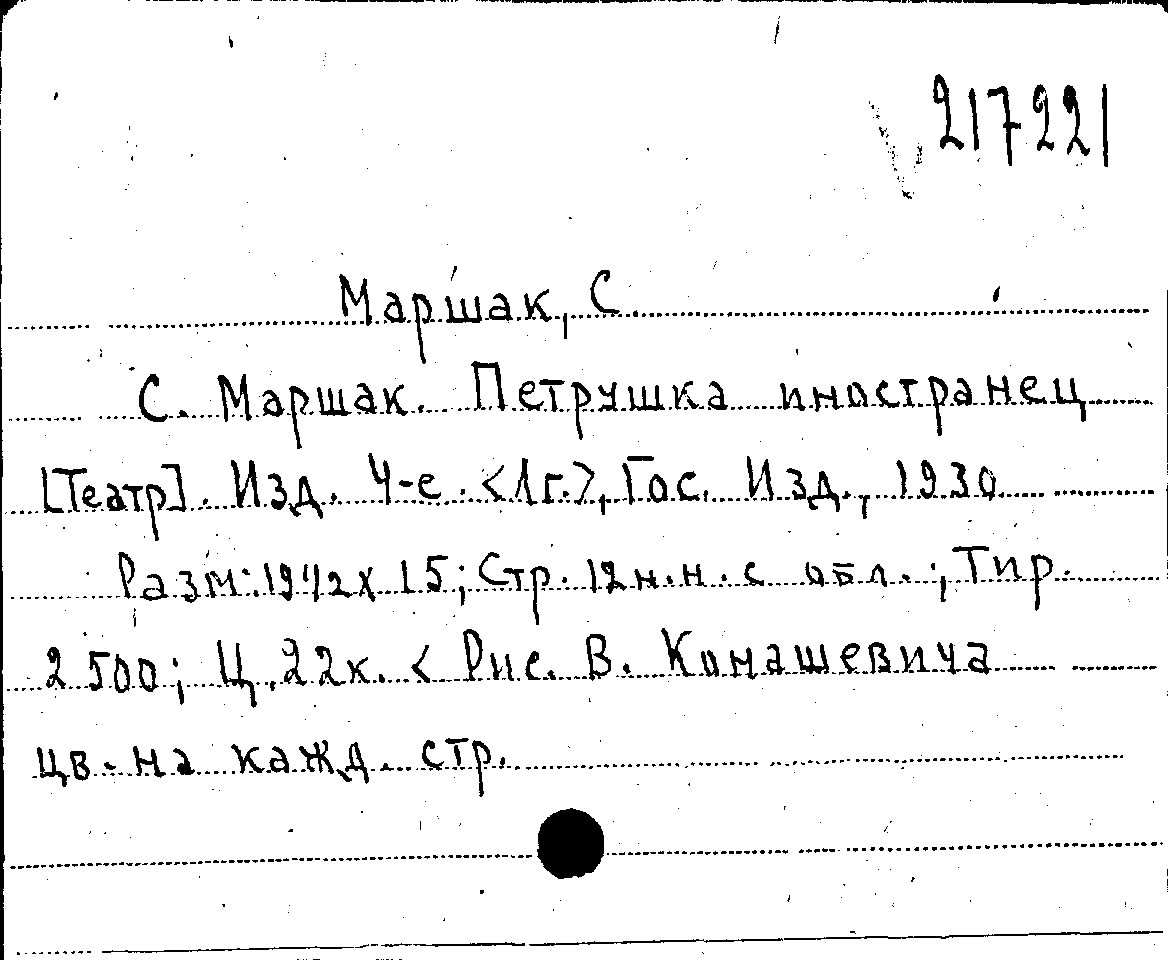 217221
Маршак, С.
С. Маршак. Петрушка иностранец
[Театр]. Изд. 4-е. <Лг.>, Гос. Изд., 1930
Разм: 19 1/2 х 15; Стр. 12 н.н. с обл.; Тир.
2 500; Ц. 22 к. < Рис. В. Конашевича
цв. на кажд. стр.